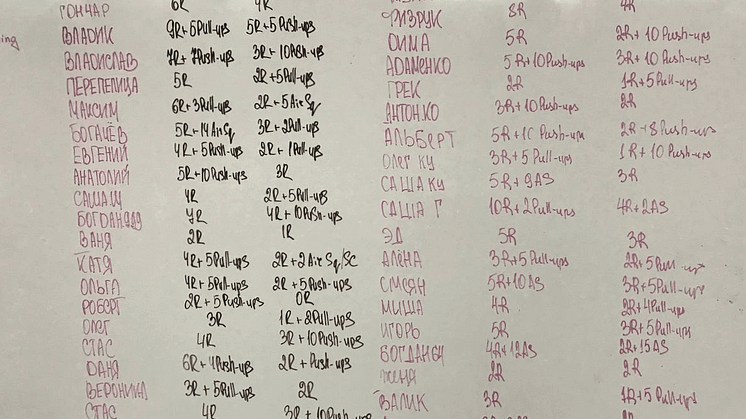 ГОНЧАР 6R 4R
ing
ВЛАДИК 9R+5Pull-ups 5R+5Push-ups
ВЛАДИСЛАВ 7R+7Push-ups 3R+10Push-ups
ПЕРЕПЕЛИЦА 5R 2R+5Pull-up
МАКСИМ 6R+3Pull-ups 2R+5AirSq
БОГАЧЁВ 5R+14AirSq 3R+2Pull-ups
ЕВГЕНИЙ 4R+5Push-ups 2R+1Pull-up
АНАТОЛИЙ 5R+10Push-ups 3R
САШАЩ 4R 2R+5Pull-up
4R+10Push-ups
ВАНЯ 2R 1R
КАТЯ 4R+5Pull-ups 2R+2Air Sq/SC
ОЛЬГА 4R+5Pull-ups 2R+5Push-ups
РОБЕРТ 2R+5Push-ups 0R
ОЛЕГ 3R 1R+2Pull-ups
СТАС 4R 3R+10Push-ups
ДАНЯ 6R+4Push-ups 2R+Push-ups
ВЕРОНИКА 3R+5Pull-ups 2R
СТАС 4R 3R+10Push-ups
ФИЗРУК 8R 4R
ДИМА 5R 2R+10Push-ups
АДАМЕНКО 5R+10Push-ups 3R+10Push-ups
ГРЕК 2R 1R+5Pull-up
АНТОНКО 3R+10Push-ups 2R
АЛЬБЕРТ 5R+10Push-ups 2R+8Push-up
ОЛЕГ КУ 3R+5Pull-ups 1R+10Push-ups
САША КУ 5R+9AS 3R
САША Г 10R+2Pull-ups 4R+2AS
ЭД 5R 3R
АЛЁНА 3R+5Pull-ups 2R+5Pull-up
СМЕЯН 5R+10AS 3R+5Pull-ups
МИША 4R 2R+4Pull-ups
ИГОРЬ 5R 3R+5Pull-up
4R+12AS 2R+15AS
ЖЕНЯ 2R 2R
ВАЛИК 3R 1R+5Pull-ups